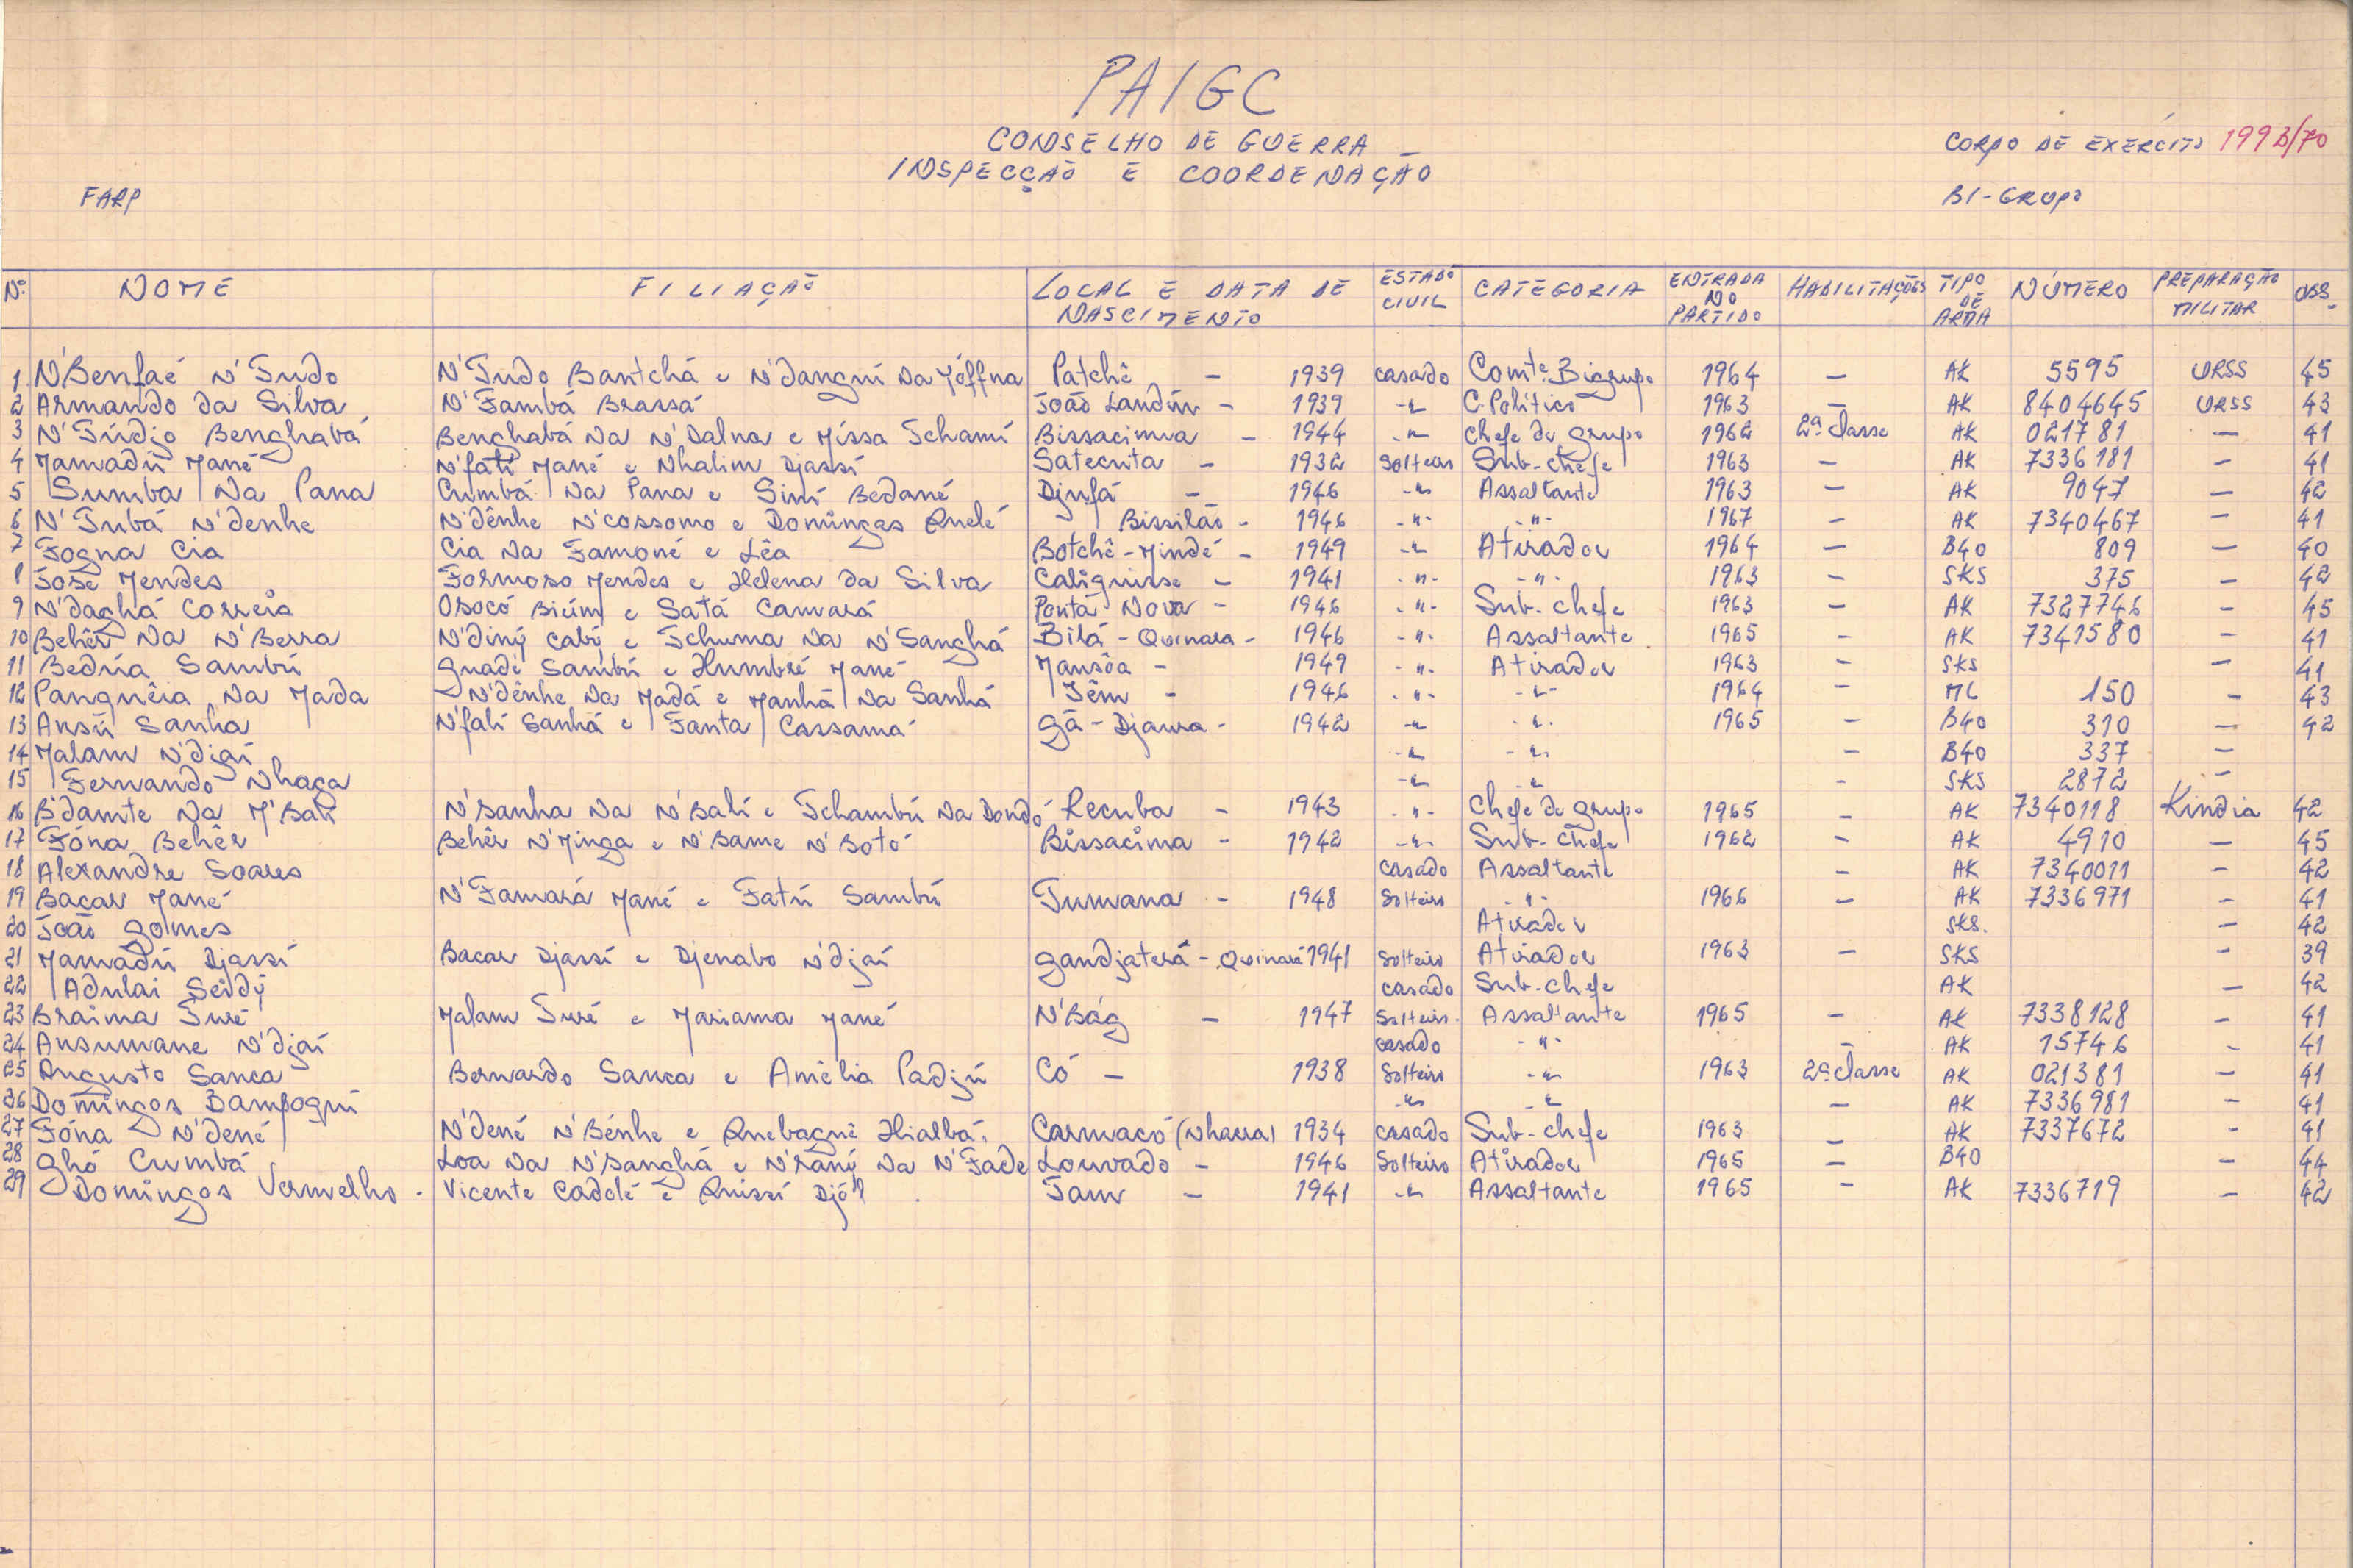 PAIGC
CONSELHO DE GUERRA
INSPECÇÃO E COORDENAÇÃO
CORPO DE EXÉRCITO 199B/70
FARP
BI-GRUPO
Nº NOME FILIAÇÃO LOCAL E DATA DE NASCIMENTO ESTADO CIVIL CATEGORIA ENTRADA NO PARTIDO HABILITAÇÕES TIPO DE ARMA NÚMERO PREPARAÇÃO MILITAR OBS.
1 N'Benfaé N'Tudo N'Tudo Bantchá e N'dangui Na Móffna Patchê - 1939 casado Comte. Bigrupo 1964 - AK 5595 URSS 45
2 Armando da Silva N'Fambá Brassá João Landim - 1939 -"- C. Político 1963 - AK 8404645 URSS 43
3 N'Túdjo Benghabá Benghabá Na N'Dalna e Missa Tchamí Bissacimra - 1944 -"- Chefe de grupo 1962 2ª classe AK 021781 - 41
4 Mamadú Mané N'fatí Mané e Nhalim Djassí Satecuta - 1932 Solteiro Sub-chefe 1963 - AK 7336181 - 41
5 Sumba Na Pana Cumbá Na Pana e Simí Bedané Djufá - 1946 -"- Assaltante 1963 - AK 9047 - 42
6 N'Tubá N'denhe N'dênhe N'cossomo e Domingas Quelé Bissilão - 1946 -"- -"- 1967 - AK 7340467 - 41
7 Fogna Cia Cia Na Famoné e Lêa Botchê-Mindé - 1949 -"- Atirador 1964 - B40 809 - 40
8 José Mendes Formoso Mendes e Helena da Silva Caliquisse - 1941 -"- -"- 1963 - SKS 375 - 42
9 N'daghá Correia Osocó Biúm e Satá Camará Ponta Nova - 1946 -"- Sub-chefe 1963 - AK 7327746 - 45
10 Behêr Na N'Berra N'diný cabý e Tchuma Na N'Sanghá Bilá-Quinara - 1946 -"- Assaltante 1965 - AK 7341580 - 41
11 Bedúa Sambú Guade Sambú e Humbré Mané Mansôa - 1949 -"- Atirador 1963 - SKS - 41
12 Panguêia Na Mada N'dênhe Na Madá e Manhá Na Sanhá Jêm - 1946 -"- -"- 1964 - ML 150 - 43
13 Ansú Sanha N'falí Sanhá e Fanta Cassamá Gã-Djaura - 1942 -"- -"- 1965 - B40 310 - 42
14 Malam N'djaí -"- -"- - B40 337 -
15 Fernando Nhaga -"- -"- - SKS 2872 -
16 B'damte Na M'Bali N'sanha Na N'Balí e Tchambú Na Dondó Recuba - 1943 -"- Chefe de grupo 1965 - AK 7340118 Kindia 42
17 Fóna Behêr Behêr N'Minga e N'Bame N'Botó Bissacima - 1942 -"- Sub-chefe 1962 - AK 4910 - 45
18 Alexandre Soares casado Assaltante - AK 7340011 - 42
19 Bacar Mané N'Famará Mané e Fatú Sambú Tumana - 1948 Solteiro -"- 1966 - AK 7336971 - 41
20 João Golmes Atirador SKS. - 42
21 Mamadú Djassí Bacar Djassí e Djenabo N'djaí Gandjaterá - Quinará 1941 Solteiro Atirador 1963 - SKS - 39
22 Adulai Seidý casado Sub-chefe AK - 42
23 Braima Turé Malam Turé e Mariama Mané N'Bág - 1947 Solteiro Assaltante 1965 - AK 7338128 - 41
24 Ansumane N'djaí casado -"- - AK 15746 - 41
25 Augusto Sanca Bernardo Sanca e Amélia Padjú Có - 1938 Solteiro -"- 1963 2ª classe AK 021381 - 41
26 Domingos Bampoquí -"- -"- - AK 7336981 - 41
27 Fóna N'dené N'dené N'Bénhe e Quebagué Hialbá. Carmacó (Nhacra) 1934 casado Sub-chefe 1963 - AK 7337672 - 41
28 Ghó Cumbá Loa Na N'Sanghá e N'raný Na N'Fade Louvado - 1946 Solteiro Atirador 1965 - B40 - 44
29 Domingos Vermelho. Vicente Cadolé e Quissí Djó Tam - 1941 -"- Assaltante 1965 - AK 7336719 - 42